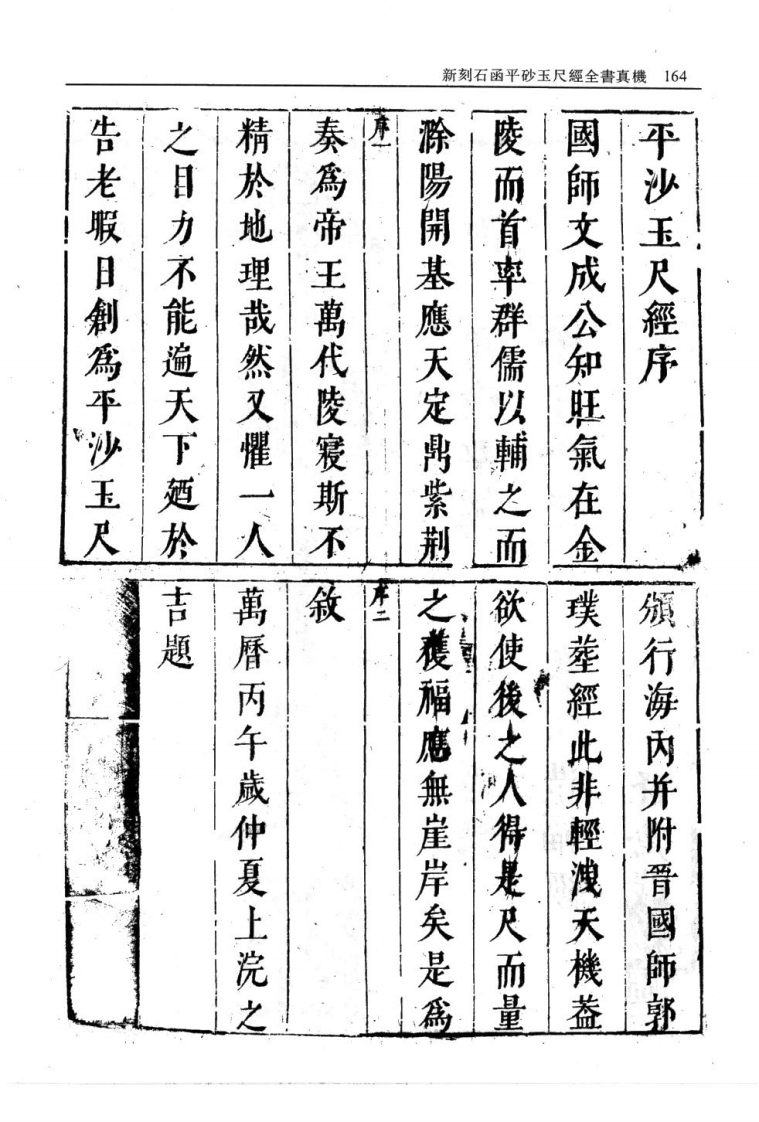 新刻石函平砂玉尺經全書真機 164
平沙玉尺經序
國師文成公知旺氣在金
陵而首率群儒以輔之而
滁陽開基應天定鼎紫荆
序一
奏爲帝王萬代陵寢斯不
精於地理哉然又懼一人
之目力不能遍天下廼於
告老暇日創爲平沙玉尺
頒行海內并附晉國師郭
璞塟經此非輕洩天機葢
欲使後之人得是尺而量
之穫福應無崖岸矣是爲
序二
敘
萬曆丙午歲仲夏上浣之
吉題